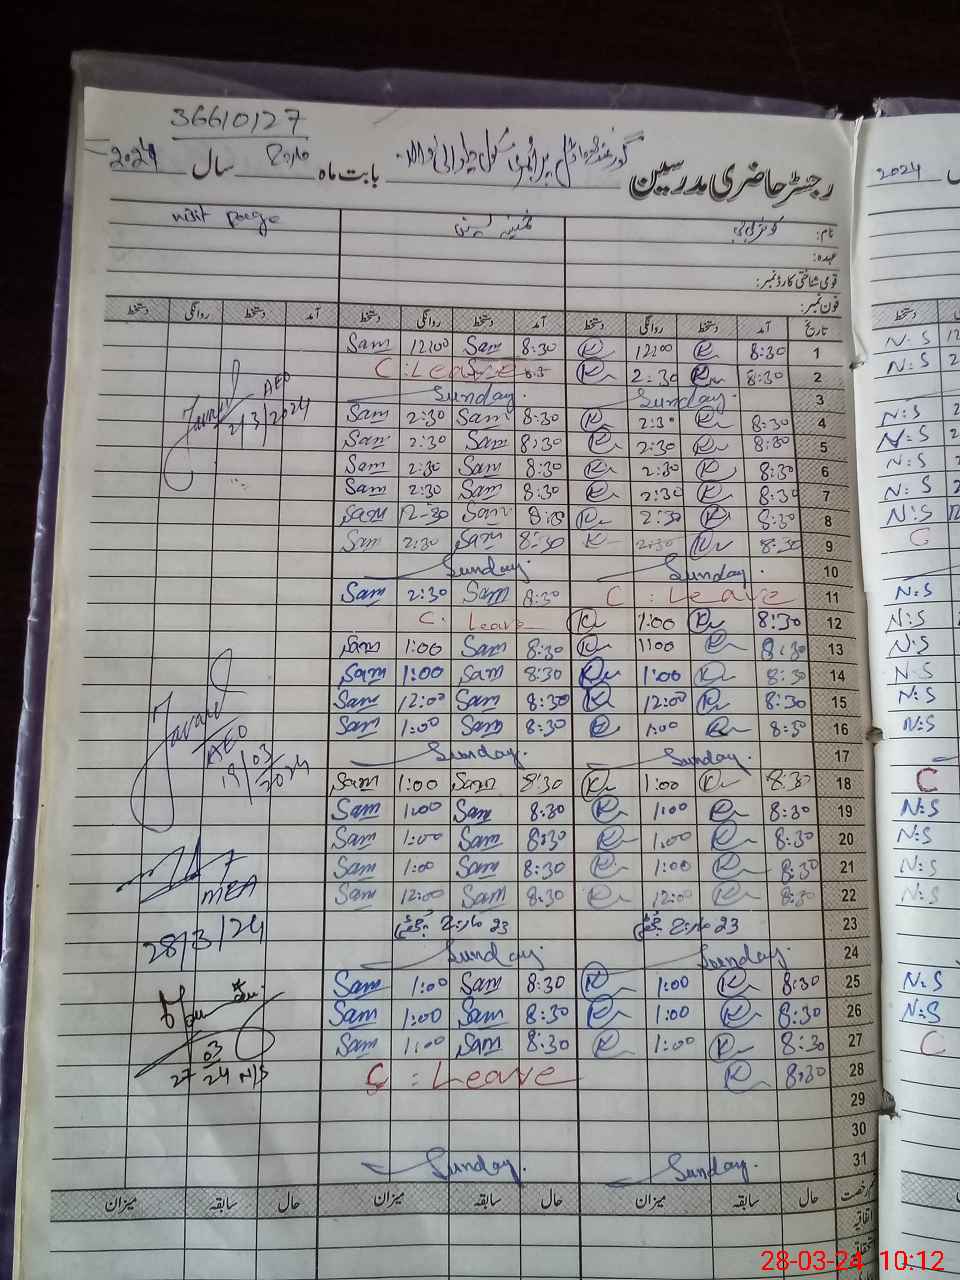 36610127
رجسٹر حاضری مدرسین گورنمنٹ پرائمری سکول بابت ماہ مارچ سال 2024
2024
نام: کوثر بی بی visit page
عہدہ:
قومی شناختی کارڈ نمبر:
فون نمبر:
تاریخ آمد دستخط روانگی دستخط آمد دستخط روانگی دستخط آمد دستخط روانگی دستخط
دستخط
1 8:30 K 12:00 K 8:30 Sam 12:00 Sam N:S
2 8:30 K 2:30 K C:Leave N:S
3 Sunday. Sunday.
4 8:30 K 2:30 K 8:30 Sam 2:30 Sam N:S
5 8:30 K 2:30 K 8:30 Sam 2:30 Sam N:S
6 8:30 K 2:30 K 8:30 Sam 2:30 Sam N:S
7 8:30 K 2:30 K 8:30 Sam 2:30 Sam N:S
8 8:30 K 2:30 K 8:30 Sam 12:30 Sam N:S
9 8:30 K 2:30 K 8:30 Sam 2:30 Sam C
10 Sunday. Sunday.
11 C:Leave 8:30 Sam 2:30 Sam N:S
12 8:30 K 1:00 K C.Leave N:S
13 8:30 K 1:00 K 8:30 Sam 1:00 Sam N:S
14 8:30 K 1:00 K 8:30 Sam 1:00 Sam N:S
15 8:30 K 12:00 K 8:30 Sam 12:00 Sam N:S
16 8:30 K 1:00 K 8:30 Sam 1:00 Sam N:S
17 Sunday. Sunday.
18 8:30 K 1:00 K 8:30 Sam 1:00 Sam C
19 8:30 K 1:00 K 8:30 Sam 1:00 Sam N:S
20 8:30 K 1:00 K 8:30 Sam 1:00 Sam N:S
21 8:30 K 1:00 K 8:30 Sam 1:00 Sam N:S
22 8:30 K 12:00 K 8:30 Sam 12:00 Sam N:S
23 23 مارچ چھٹی 23 مارچ چھٹی
24 Sunday. Sunday.
25 8:30 K 1:00 K 8:30 Sam 1:00 Sam N:S
26 8:30 K 1:00 K 8:30 Sam 1:00 Sam N:S
27 8:30 K 1:00 K 8:30 Sam 1:00 Sam C
28 8:30 K C:Leave
29
30
31 Sunday. Sunday.
Javaid AEO
2/3/2024
Javaid
AEO
19/03/2024
MEA
28/3/24
27/03/24 N/S
حال سابقہ میزان حال سابقہ میزان حال سابقہ میزان
اتفاقیہ
28-03-24 10:12